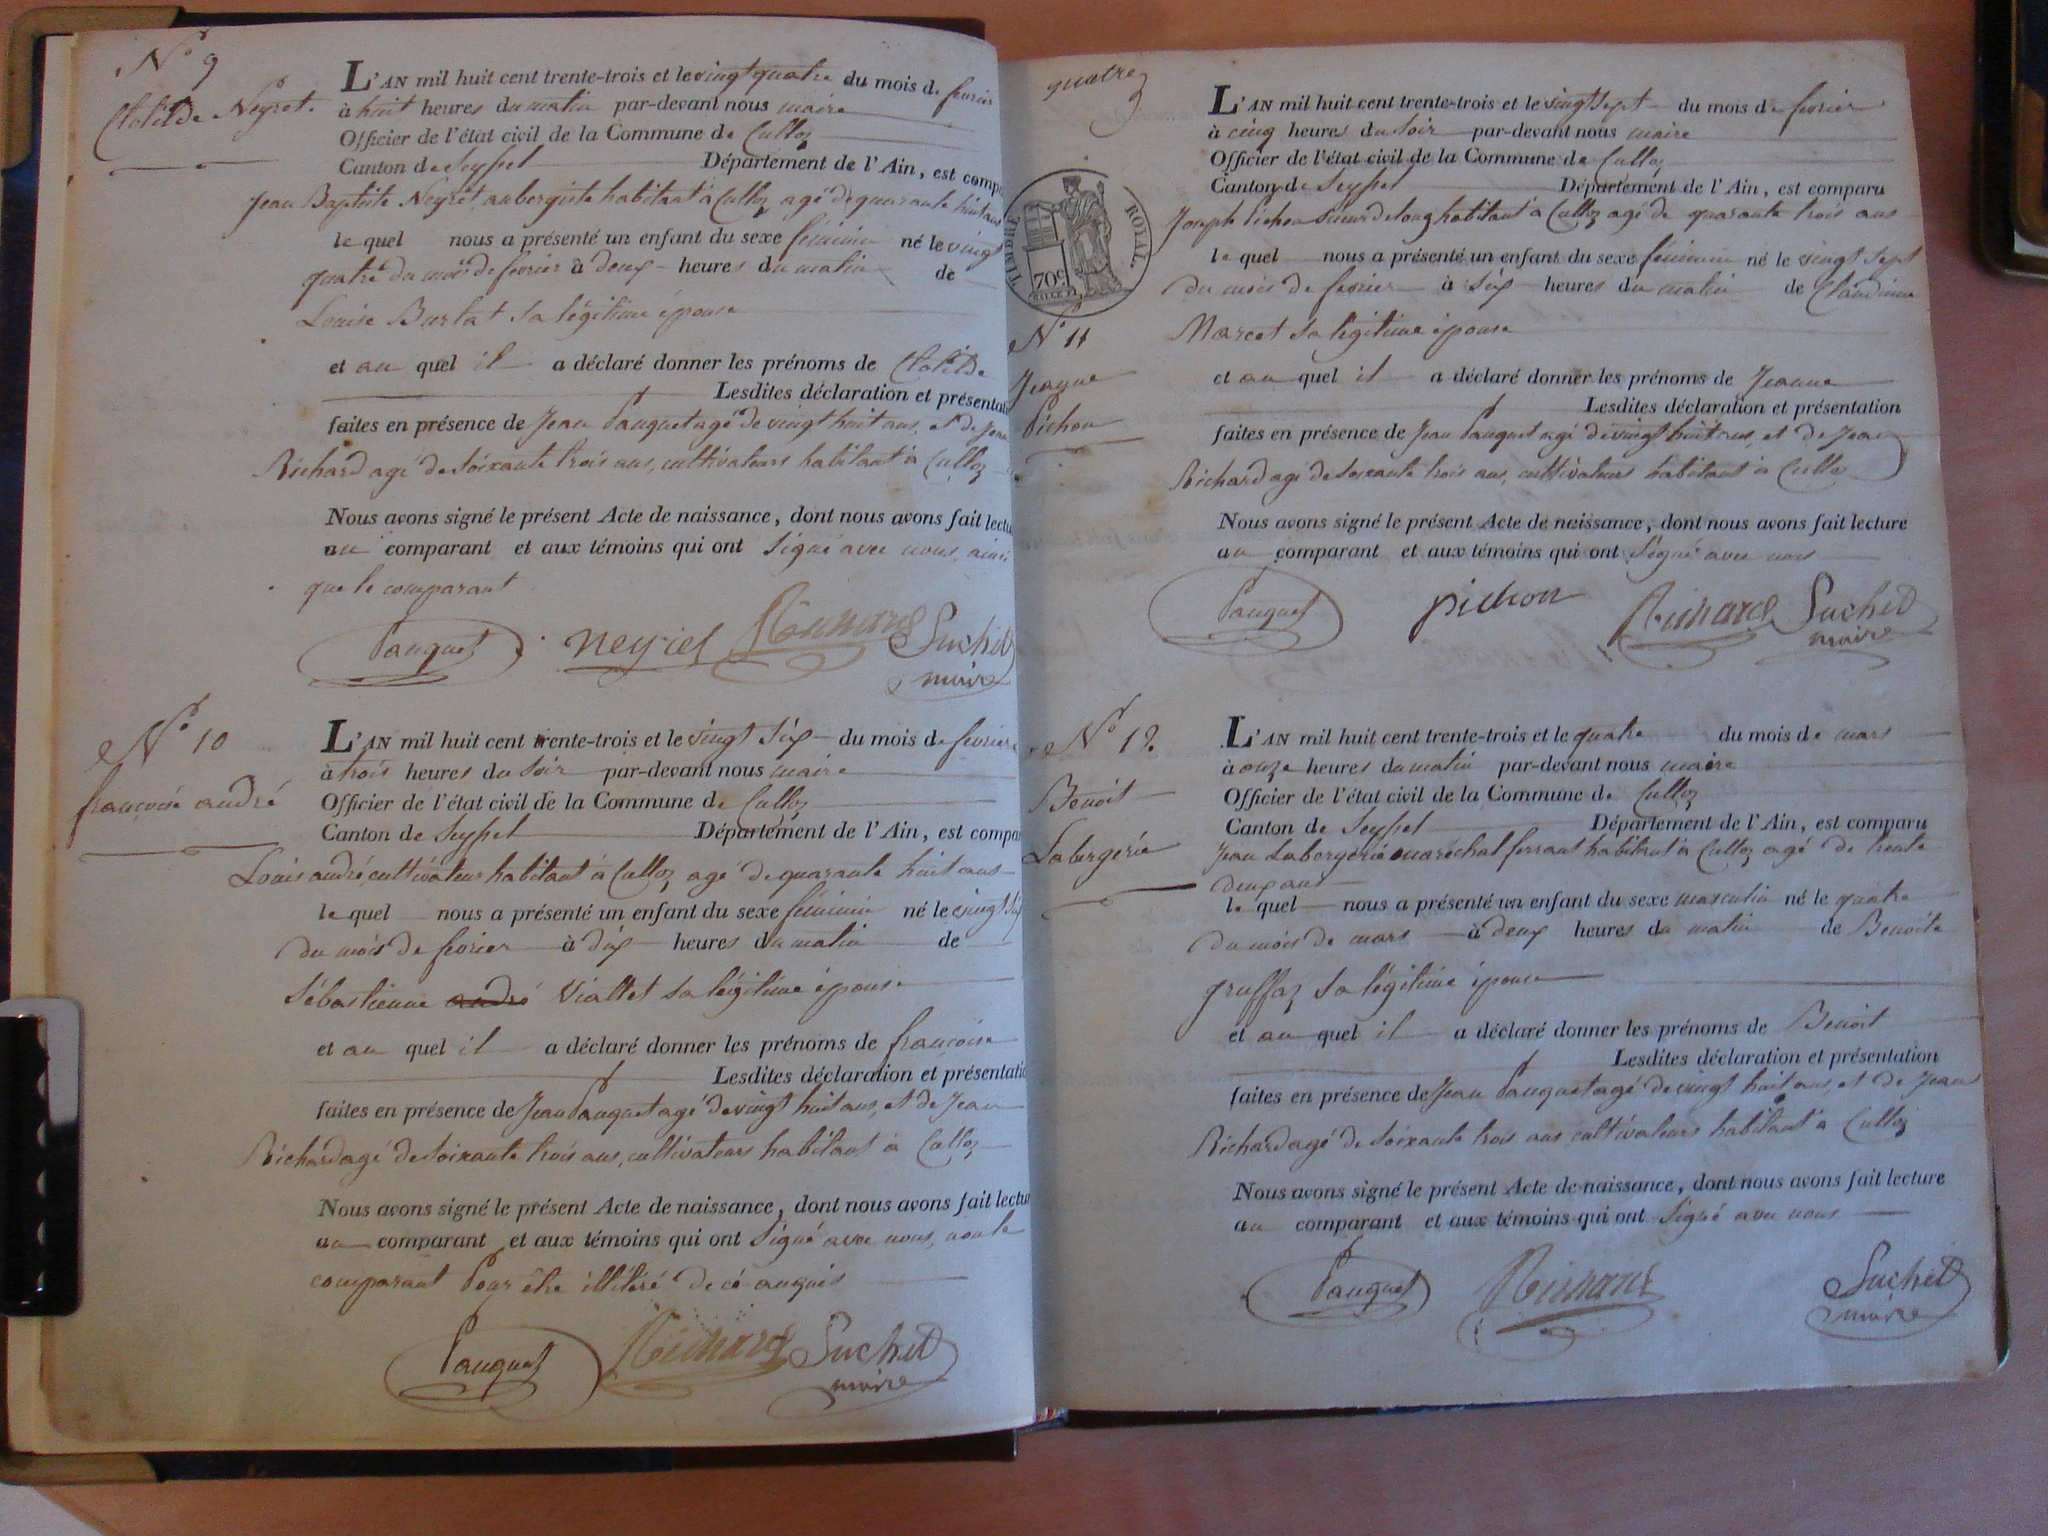 N° 9
Clotilde Neyret.
L'AN mil huit cent trente-trois et le vingt quatre du mois de fevrier
à huit heures du matin par-devant nous maire
Officier de l'état civil de la Commune de Culloz
Canton de Seyssel Département de l'Ain, est compa
Jean Baptiste Neyret aubergiste habitant à Culloz agé de quarante huit ans
le quel nous a présenté un enfant du sexe féminin né le vingt
quatre du mois de fevrier à deux heures du matin de
Louise Burlat sa légitime épouse
et au quel il a déclaré donner les prénoms de Clotilde
Lesdites déclaration et présentati
faites en présence de Jean Pauquet agé de vingt huit ans, et de Jean
Richard agé de soixante trois ans, cultivateurs habitant à Culloz
Nous avons signé le présent Acte de naissance, dont nous avons fait lectu
au comparant et aux témoins qui ont signé avec nous, ainsi
que le comparant
Pauquet neyret Richard Suchet
maire
N° 10
françoise andré
L'AN mil huit cent trente-trois et le vingt six du mois de fevrier
à trois heures du soir par-devant nous maire
Officier de l'état civil de la Commune de Culloz
Canton de Seyssel Département de l'Ain, est compar
Louis andré, cultivateur habitant à Culloz agé de quarante huit ans
le quel nous a présenté un enfant du sexe féminin né le vingt six
du mois de fevrier à dix heures du matin de
Sébastienne andré Viallet sa légitime épouse
et au quel il a déclaré donner les prénoms de françoise
Lesdites déclaration et présentatio
faites en présence de Jean Pauquet agé de vingt huit ans, et de Jean
Richard agé de soixante trois ans, cultivateurs habitant à Culloz
Nous avons signé le présent Acte de naissance, dont nous avons fait lectur
au comparant et aux témoins qui ont signé avec nous, non le
comparant Pour être illitéré de cé anquis
Pauquet Richard Suchet
maire
quatre
TIMBRE ROYAL.
70c
N° 11
Jeanne
Pichon
L'AN mil huit cent trente-trois et le vingt sept du mois de fevrier
à cinq heures du soir par-devant nous maire
Officier de l'état civil de la Commune de Culloz
Canton de Seyssel Département de l'Ain, est comparu
Joseph Pichon scieur de long habitant à Culloz agé de quarante trois ans
le quel nous a présenté un enfant du sexe féminin né le vingt sept
du mois de fevrier à six heures du matin de Claudine
Marcet sa légitime épouse
et au quel il a déclaré donner les prénoms de Jeanne
Lesdites déclaration et présentation
faites en présence de Jean Pauquet agé de vingt huit ans, et de Jean
Richard agé de soixante trois ans, cultivateurs habitant à Culloz
Nous avons signé le présent Acte de naissance, dont nous avons fait lecture
au comparant et aux témoins qui ont signé avec nous
Pauquet pichon Richard Suchet
maire
N° 12.
Benoit
Labergerie
L'AN mil huit cent trente-trois et le quatre du mois de mars
à onze heures du matin par-devant nous maire
Officier de l'état civil de la Commune de Culloz
Canton de Seyssel Département de l'Ain, est comparu
Jean Labergerie maréchal ferrant habitant à Culloz agé de trente
deux ans
le quel nous a présenté un enfant du sexe masculin né le quatre
du mois de mars à deux heures du matin de Benoite
gruffaz sa légitime épouse
et au quel il a déclaré donner les prénoms de Benoit
Lesdites déclaration et présentation
faites en présence de Jean Pauquet agé de vingt huit ans, et de Jean
Richard agé de soixante trois ans cultivateurs habitant à Culloz
Nous avons signé le présent Acte de naissance, dont nous avons fait lecture
au comparant et aux témoins qui ont signé avec nous
Pauquet Richard Suchet
maire